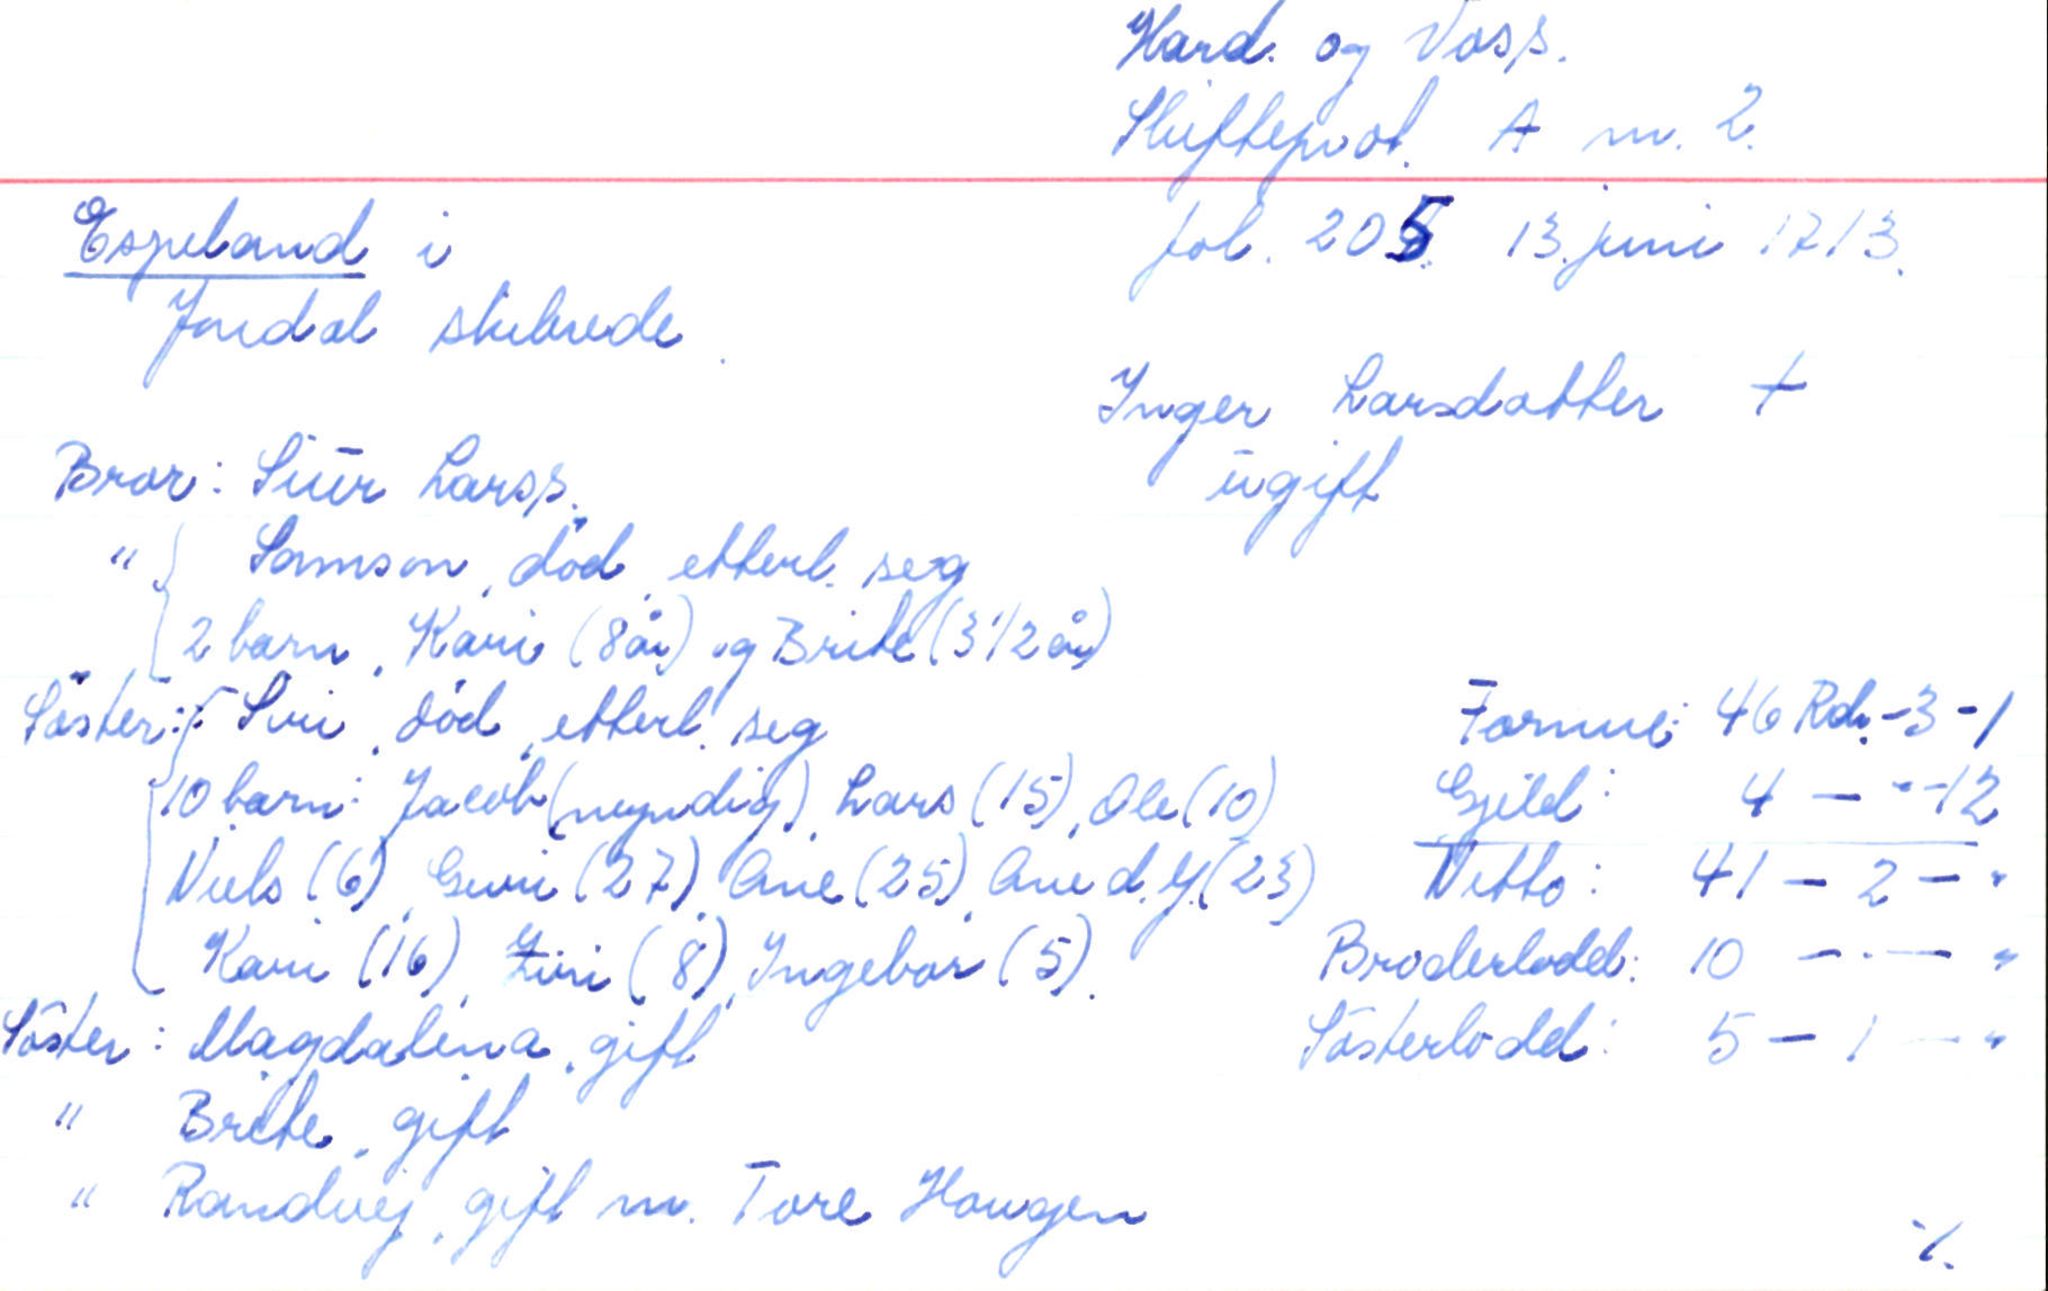 Hard. og Voss.
Skifteprot. A nr. 2.
fol. 205. 13. juni 1713.
Espeland i
Jondal skibrede.
Inger Larsdotter +
ugift
Bror: Siur Larss.
" Samson, død, etterl. seg
2 barn, Kari (8 år) og Brite (3 1/2 år)
Søster: Siri, død, etterl. seg
10 barn: Jacob (myndig), Lars (15), Ole (10)
Niels (6), Guri (27), Ane (25), Ane d.y. (23)
Kari (16), Siri (8), Ingebor (5).
Søster: Magdalena, gift
" Brite, gift
" Randvej, gift m. Tore Haugen
Formue: 46 Rd. - 3 - 1
Gjeld: 4 - " - 12
Netto: 41 - 2 - "
Broderlodd: 10 - " - "
Søsterlodd: 5 - 1 - "
./.